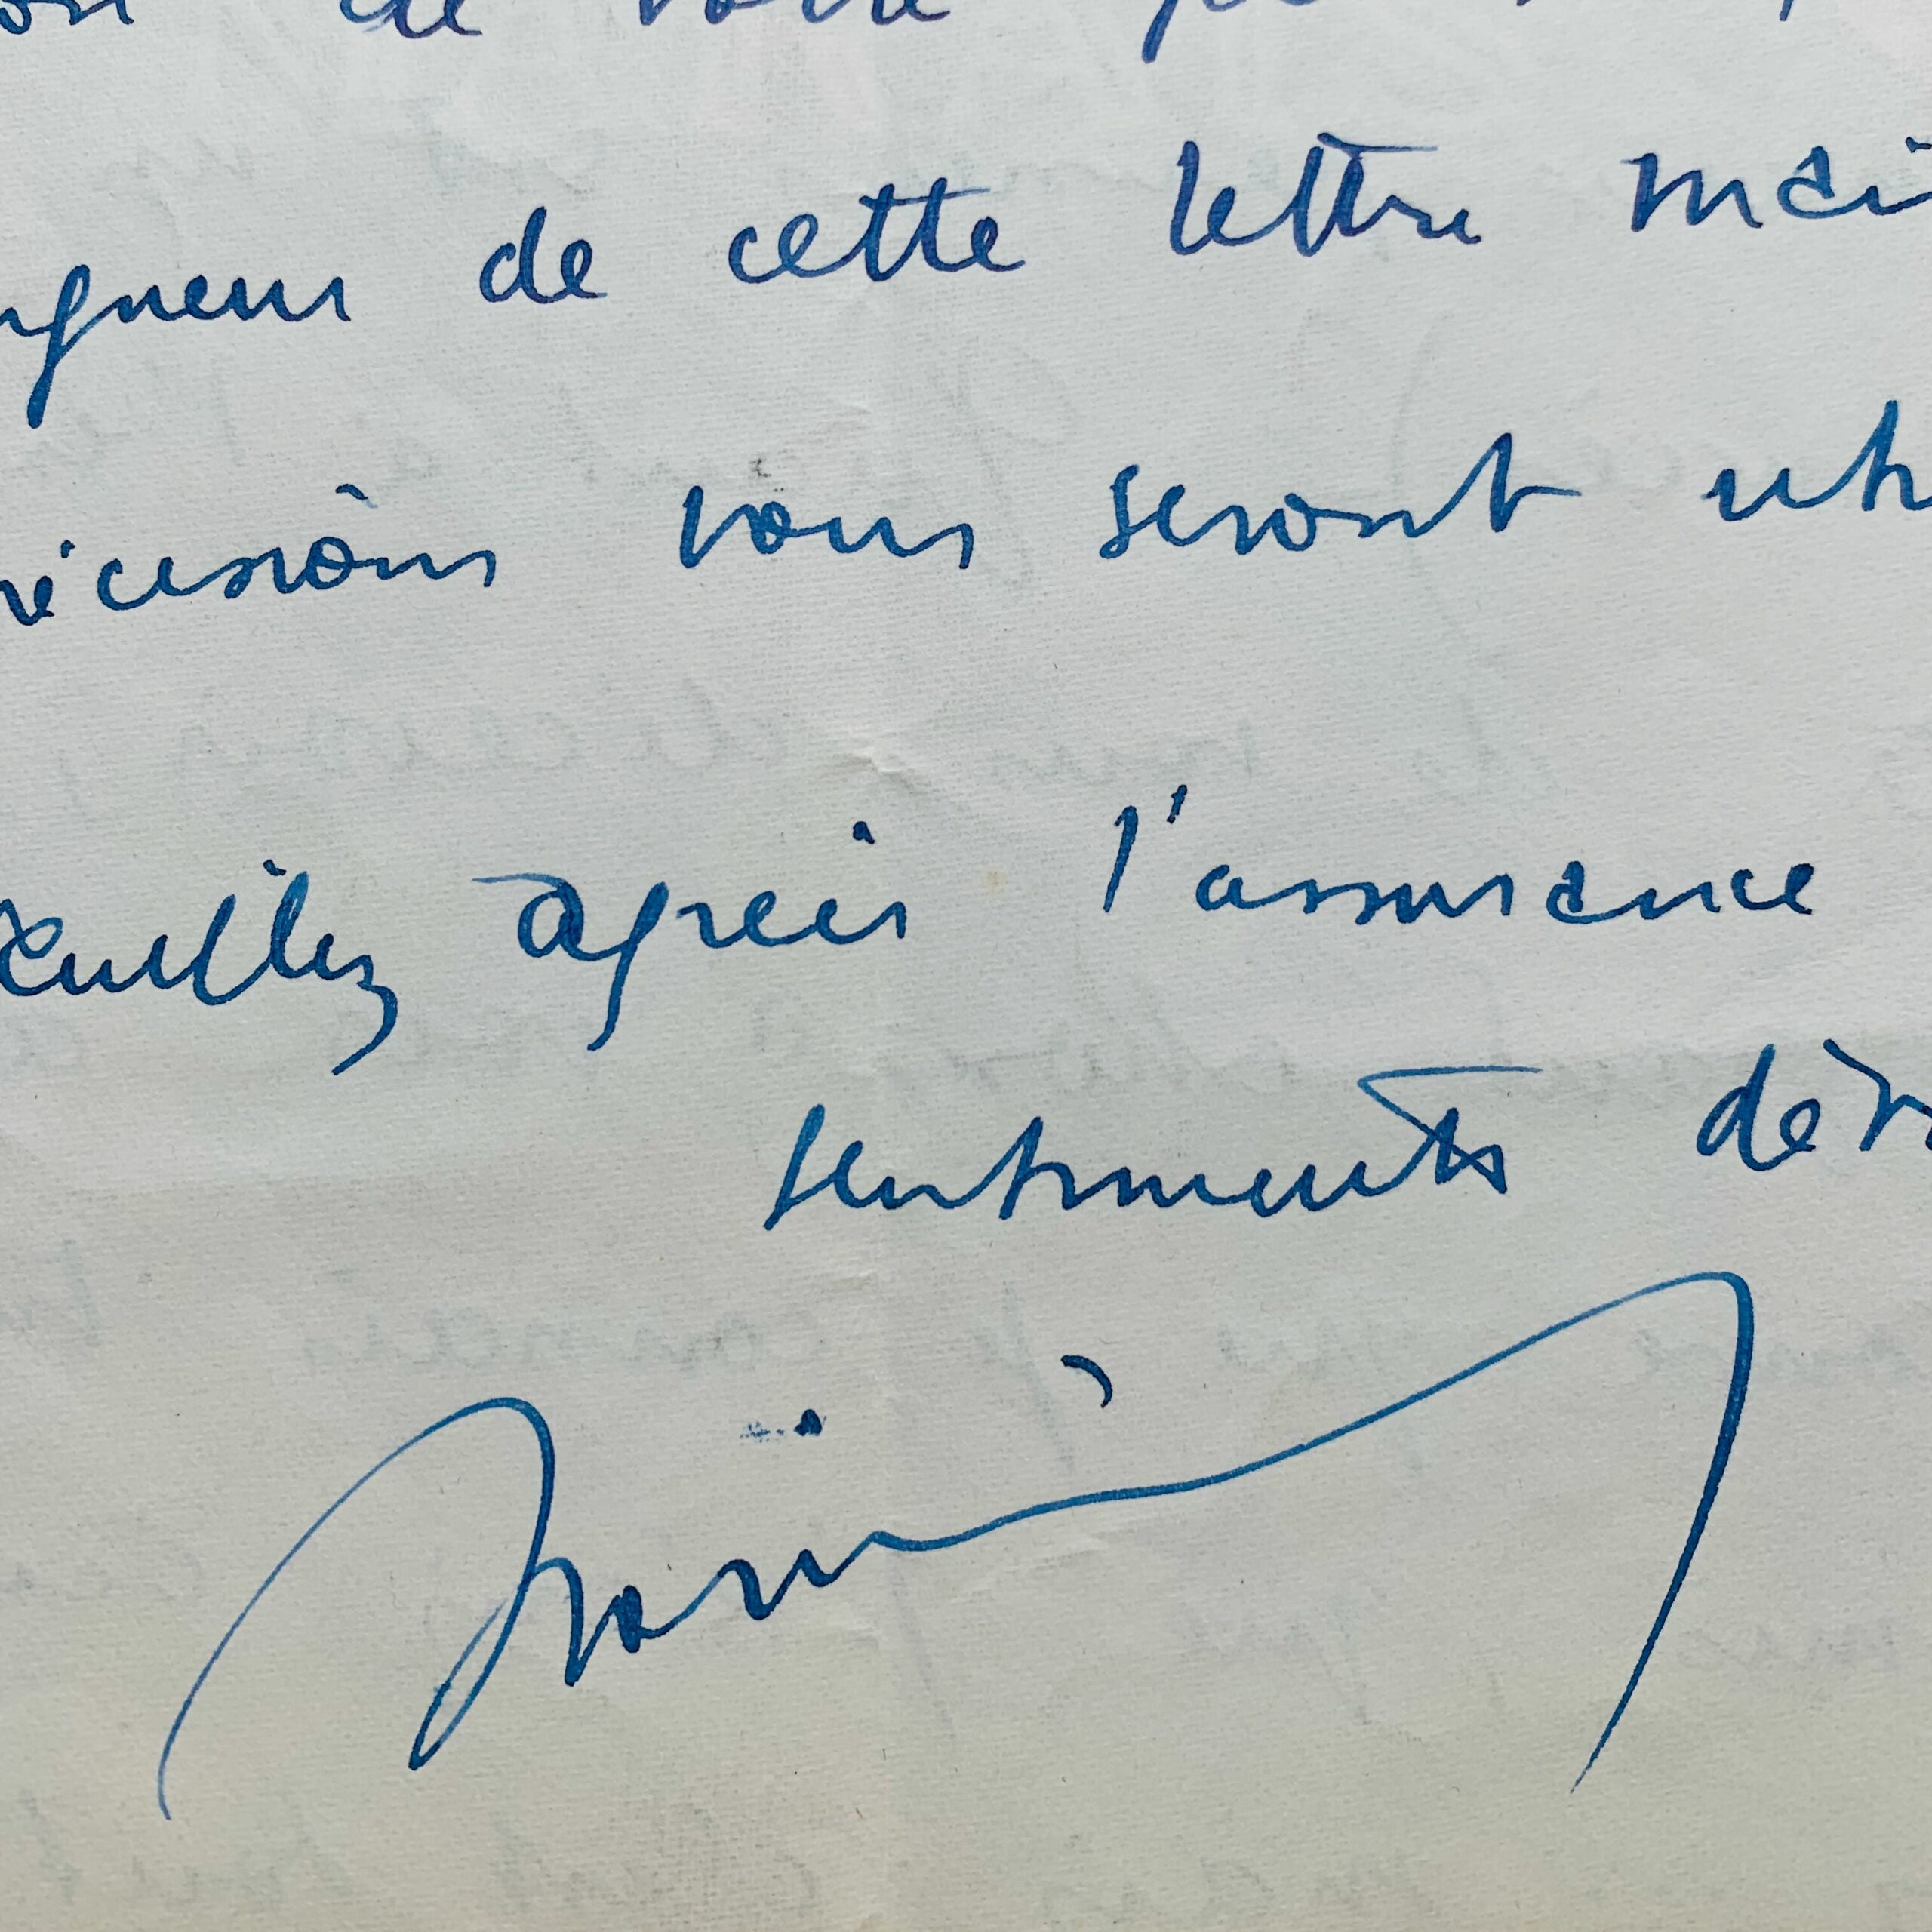 de votre
ngueur de cette lettre mai
récisions vous seront uti
euillez agréer l'assurance
sentiments dév